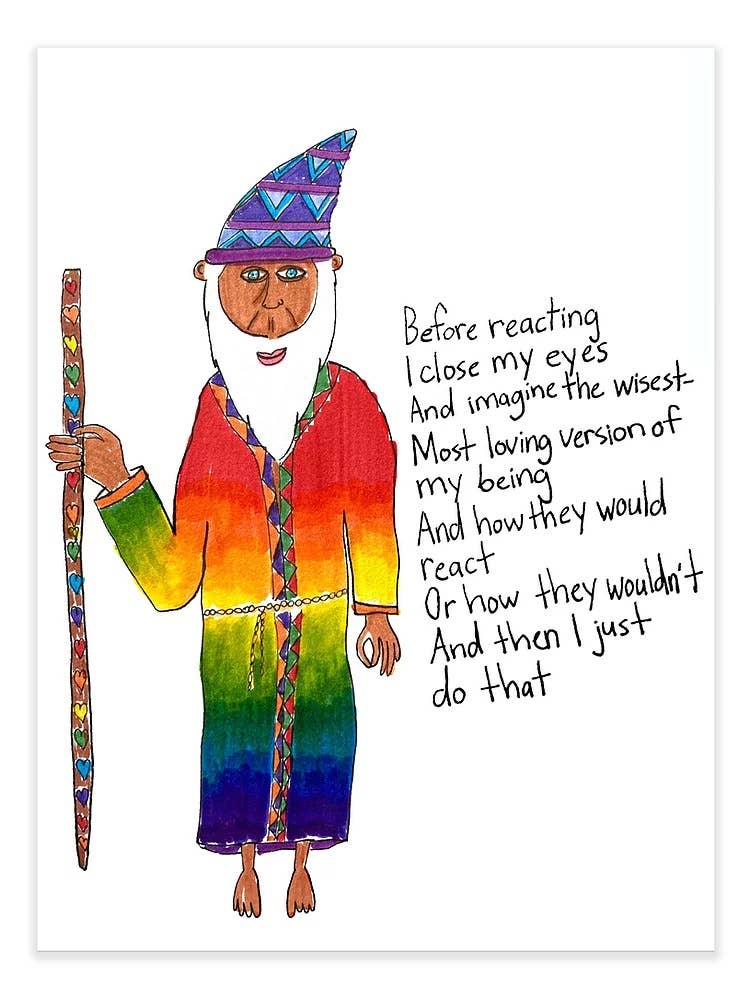 Before reacting
I close my eyes
And imagine the wisest-
Most loving version of
my being
And how they would
react
Or how they wouldn't
And then I just
do that